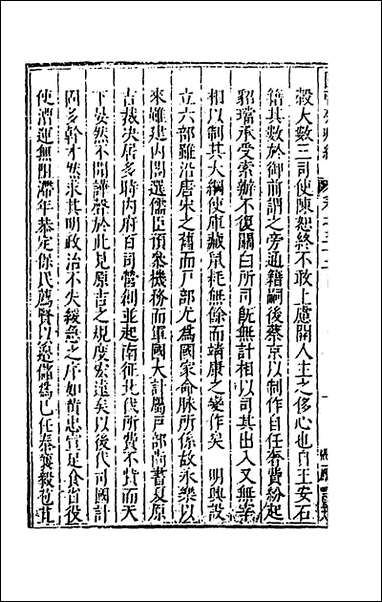 穀大數三司使陳恕終不敢上慮開人主之侈心也自王安石
籍其數於御前謂之旁通籍嗣後蔡京以制作自任奢費紛起
貂璫承受索辦不復關白所司既無計相以司其出入又無宰
相以制其大綱使庫藏鼠耗無餘而靖康之變作矣 明興設
立六部雖沿唐宋之舊而戸部尤為國家命脉所係故永樂以
來雖建内閣選儒臣預叅機務而軍國大計屬戸部尚書夏原
吉裁决居多時内府百司營創並起南征北伐所費不貲而天
下晏然不聞譁聲於此見原吉之規度宏遠矣以後代司國計
固多幹才然求其明政治不失緩急之序如黄忠宣足食省役
使漕運無阻滯年恭定保民薦賢以邊儲為已任秦襄毅苞苴